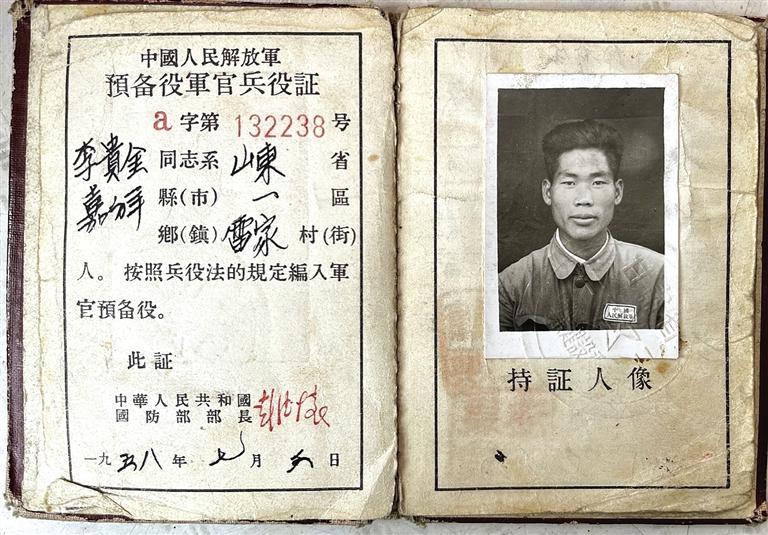 中國人民解放軍
預备役軍官兵役証
a字第 132238 号
李貴金 同志系 山東 省
嘉祥 縣(市) 一 區
鄉(鎮) 雷家 村(街)
人。按照兵役法的規定編入軍
官預备役。
此証
中華人民共和國
國防部部長 彭德懷
一九五八年 七月 日
中國
人民解放軍
持証人像